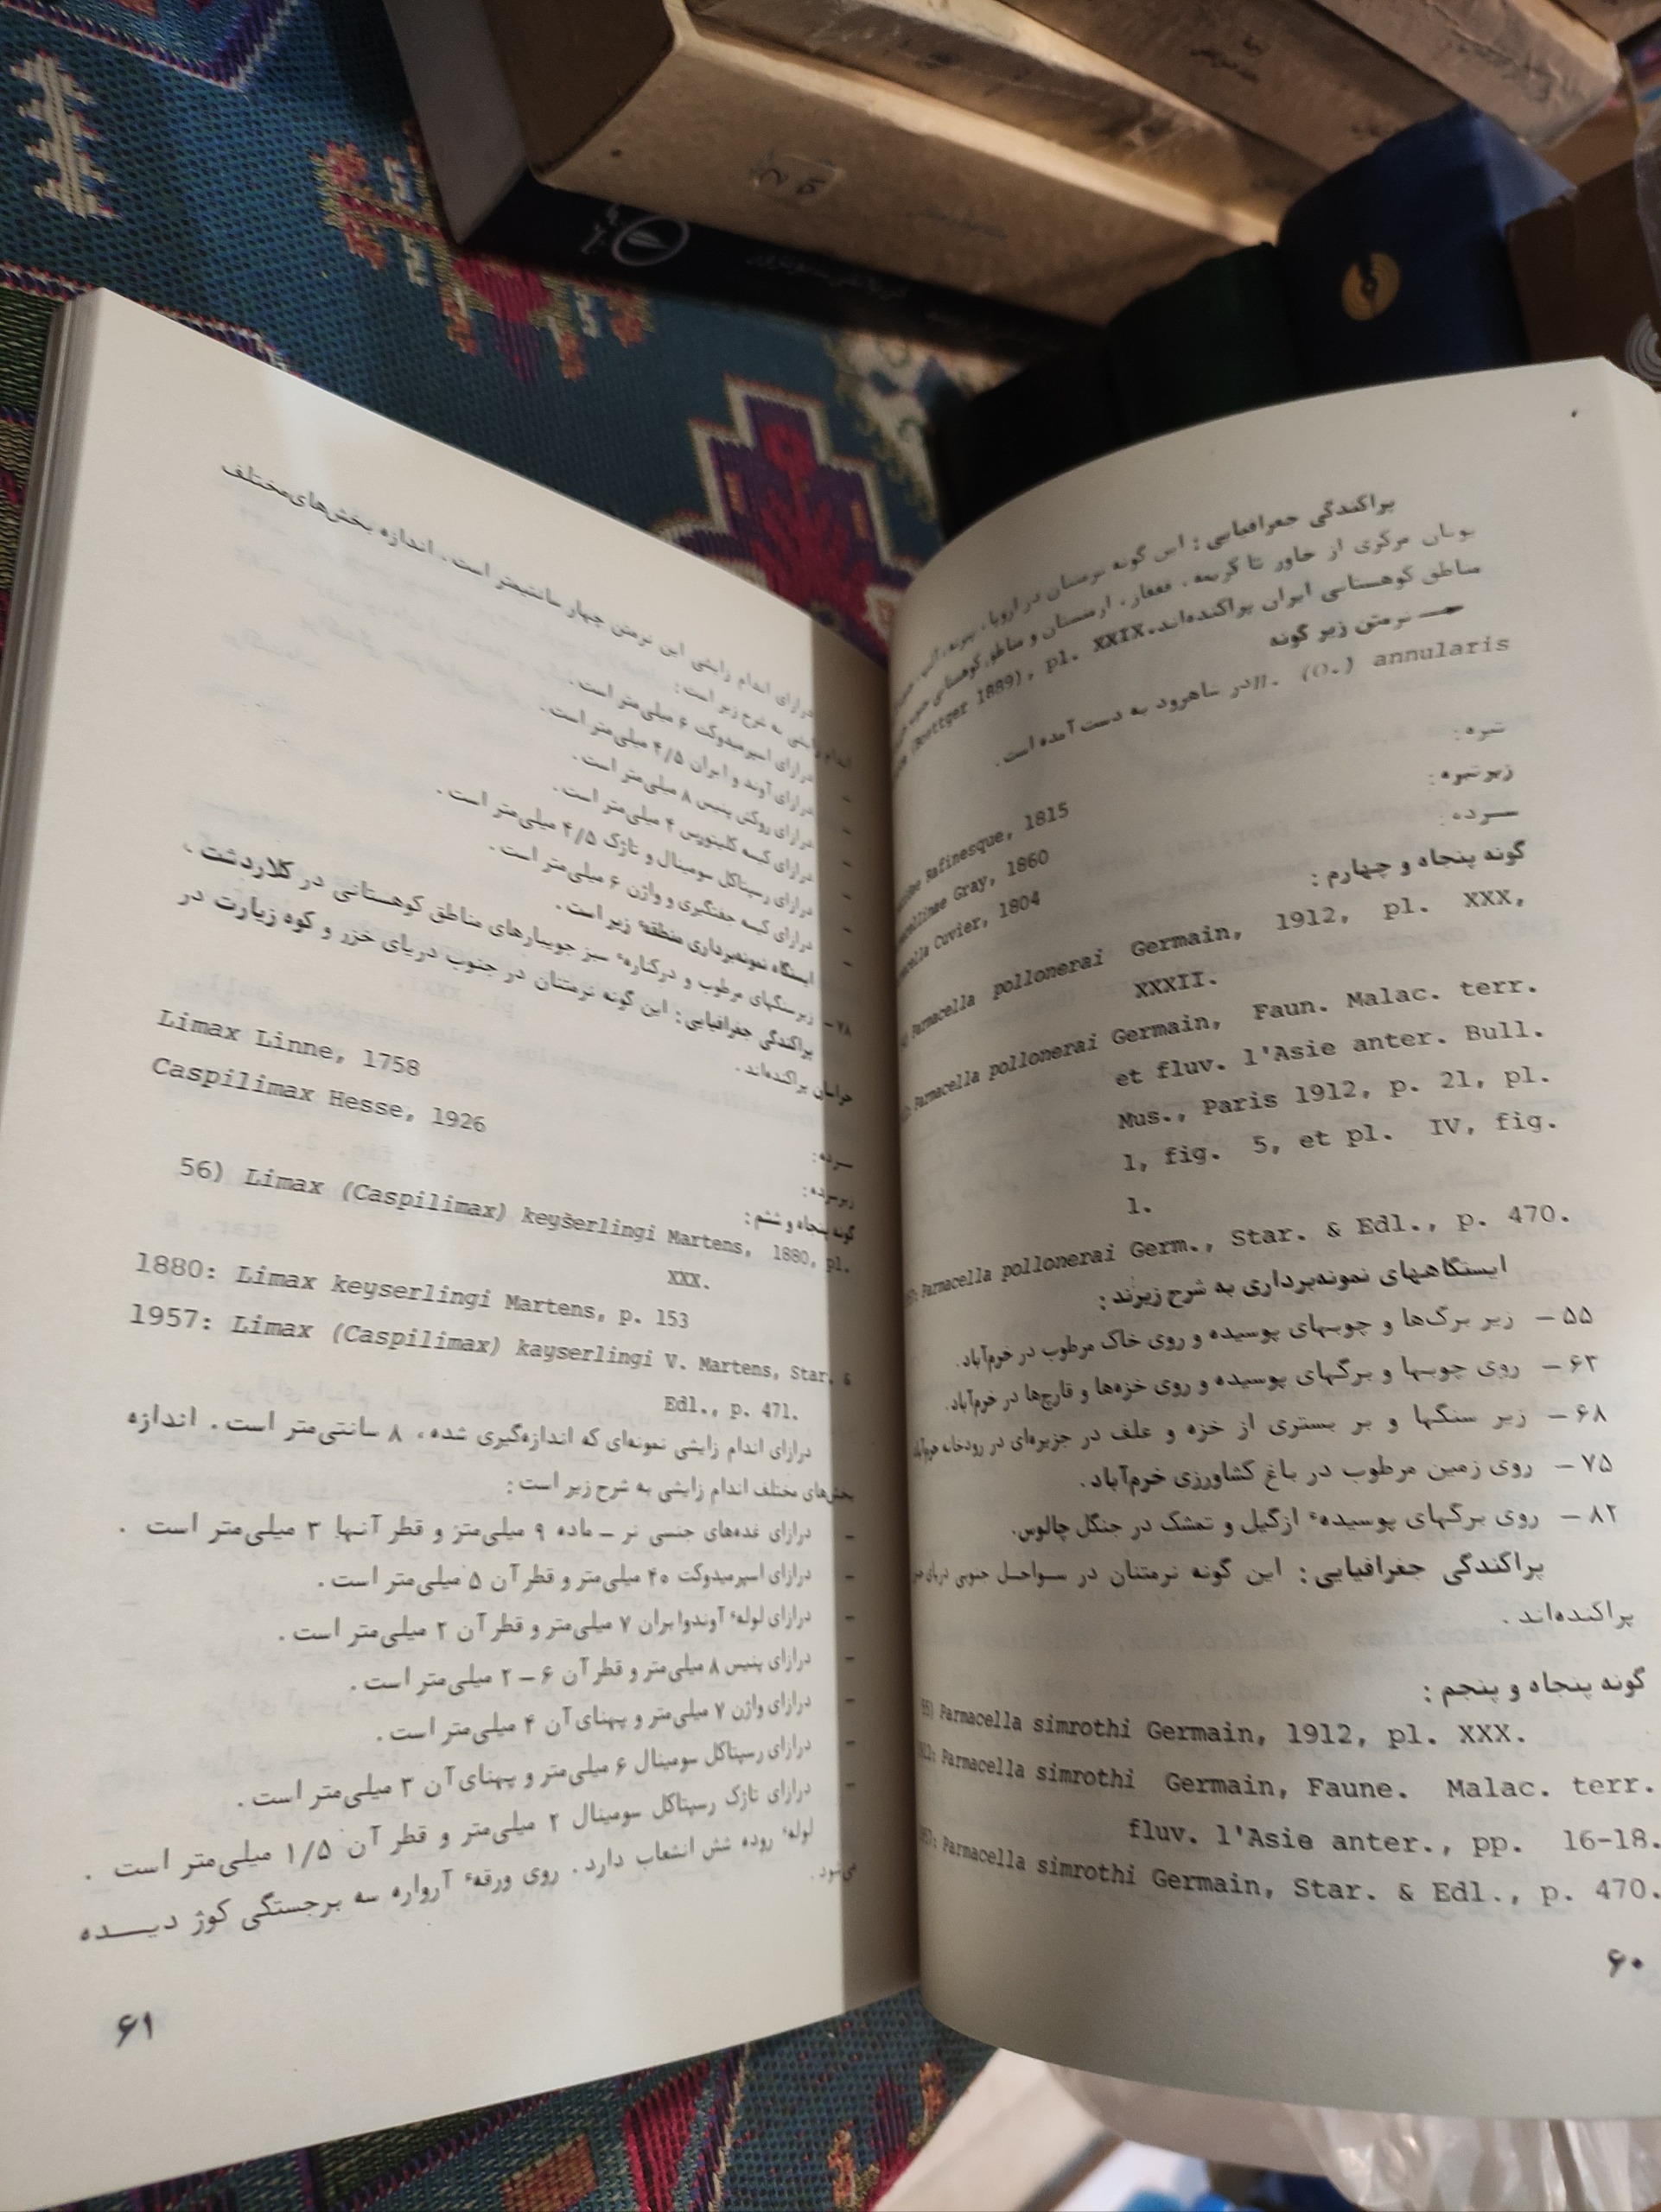 پراکندگی جغرافیایی : این گونه نرمتنان در اروپا ،
یونان مرکزی از خاور تا کریمه ، قفقاز ، ارمنستان و مناطق کوهستانی
مناطق کوهستانی ایران پراکنده‌اند.
نرمتن زیر گونه
(Boettger 1889), pl. XXIX.
(O.) annularis
در شاهرود به دست آمده است .
تیره :
زیرتیره :
سرده :
Rafinesque, 1815
Gray, 1860
Cuvier, 1804
گونه پنجاه و چهارم :
Parmacella pollonerai Germain, 1912, pl. XXX,
XXXII.
Parmacella pollonerai Germain, Faun. Malac. terr.
et fluv. l'Asie anter. Bull.
Mus., Paris 1912, p. 21, pl.
1, fig. 5, et pl. IV, fig.
1.
Parmacella pollonerai Germ., Star. & Edl., p. 470.
ایستگاههای نمونه‌برداری به شرح زیرند :
۵۵ – زیر برگ‌ها و چوبهای پوسیده و روی خاک مرطوب در خرم‌آباد.
۶۳ – روی چوبها و برگهای پوسیده و روی خزه‌ها و قارچ‌ها در خرم‌آباد.
۶۸ – زیر سنگها و بر بستری از خزه و علف در جزیره‌ای در رودخانه خرم‌آباد
۷۵ – روی زمین مرطوب در باغ کشاورزی خرم‌آباد .
۸۲ – روی برگهای پوسیدهٔ ازگیل و تمشک در جنگل چالوس.
پراکندگی جغرافیایی : این گونه نرمتنان در سواحل جنوبی دریای
پراکنده‌اند .
گونه پنجاه و پنجم :
55) Parmacella simrothi Germain, 1912, pl. XXX.
Parmacella simrothi Germain, Faune. Malac. terr.
fluv. l'Asie anter., pp. 16-18.
Parmacella simrothi Germain, Star. & Edl., p. 470.
۶۰
درازای اندام زایشی این نرمتن چهار سانتیمتر است . اندازه بخش‌های مختلف
اندام زایشی به شرح زیر است :
– درازای اسپرمیدوکت ۶ میلی‌متر است .
– درازای آوند وابران ۴/۵ میلی‌متر است .
– درازای روکش پنیس ۸ میلی‌متر است .
– درازای کیسه کلیتوریس ۴ میلی‌متر است .
– درازای رسپتاکل سومینال و تاژک ۴/۵ میلی‌متر است .
– درازای کیسه جفتگیری و واژن ۶ میلی‌متر است .
ایستگاه نمونه‌برداری منطقهٔ زیر است .
۷۸ – زیر سنگهای مرطوب و درکنارهٔ سبز جویبارهای مناطق کوهستانی در کلاردشت .
پراکندگی جغرافیایی : این گونه نرمتنان در جنوب دریای خزر و کوه زیارت در
خراسان پراکنده‌اند .
سرده : Limax Linne, 1758
زیرسرده : Caspilimax Hesse, 1926
گونه پنجاه و ششم :
56) Limax (Caspilimax) keyserlingi Martens, 1880, pl.
XXX.
1880: Limax keyserlingi Martens, p. 153
1957: Limax (Caspilimax) kayserlingi V. Martens, Star. &
Edl., p. 471.
درازای اندام زایشی نمونه‌ای که اندازه‌گیری شده ، ۸ سانتی‌متر است . اندازه
بخش‌های مختلف اندام زایشی به شرح زیر است :
– درازای غده‌های جنسی نر – ماده ۹ میلی‌متر و قطر آنها ۳ میلی‌متر است .
– درازای اسپرمیدوکت ۴۰ میلی‌متر و قطر آن ۵ میلی‌متر است .
– درازای لولهٔ آوندوابران ۷ میلی‌متر و قطر آن ۲ میلی‌متر است .
– درازای پنیس ۸ میلی‌متر و قطر آن ۶ – ۲ میلی‌متر است .
– درازای واژن ۷ میلی‌متر و پهنای آن ۴ میلی‌متر است .
– درازای رسپتاکل سومینال ۶ میلی‌متر و پهنای آن ۳ میلی‌متر است .
– درازای تاژک رسپتاکل سومینال ۲ میلی‌متر و قطر آن ۱/۵ میلی‌متر است .
لولهٔ روده شش انشعاب دارد . روی ورقهٔ آرواره سه برجستگی کوژ دیده
می‌شود .
۶۱